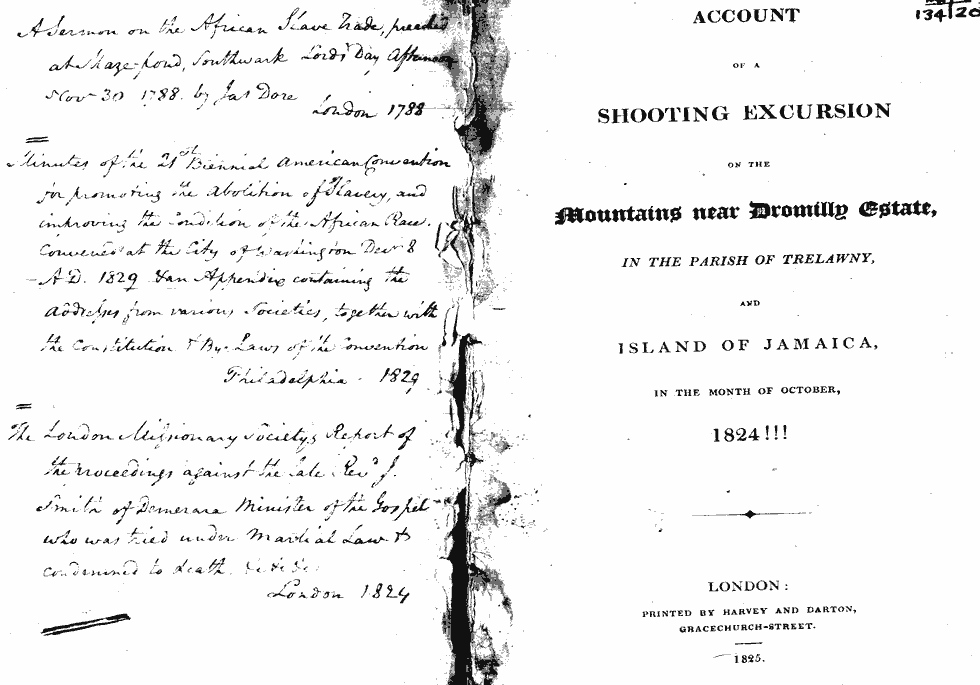 A Sermon on the African Slave Trade, preached
at Maze-pond, Southwark Lord's Day Afternoon
Nov 30 1788. by Jas Dore
London 1788
Minutes of the 21st Biennial American Convention
for promoting the Abolition of Slavery, and
improving the Condition of the African Race.
Convened at the City of Washington Decr 8
A.D. 1829 & an Appendix containing the
addresses from various Societies, together with
the Constitution & Bye-Laws of the Convention
Philadelphia - 1829
The London Missionary Society's Report of
the proceedings against the late Revd J.
Smith of Demerara Minister of the Gospel
who was tried under Martial Law &
condemned to death. &c &c &c
London 1824
134/20
ACCOUNT
OF A
SHOOTING EXCURSION
ON THE
Mountains near Dromilly Estate,
IN THE PARISH OF TRELAWNY,
AND
ISLAND OF JAMAICA,
IN THE MONTH OF OCTOBER,
1824!!!
LONDON:
PRINTED BY HARVEY AND DARTON,
GRACECHURCH-STREET.
1825.